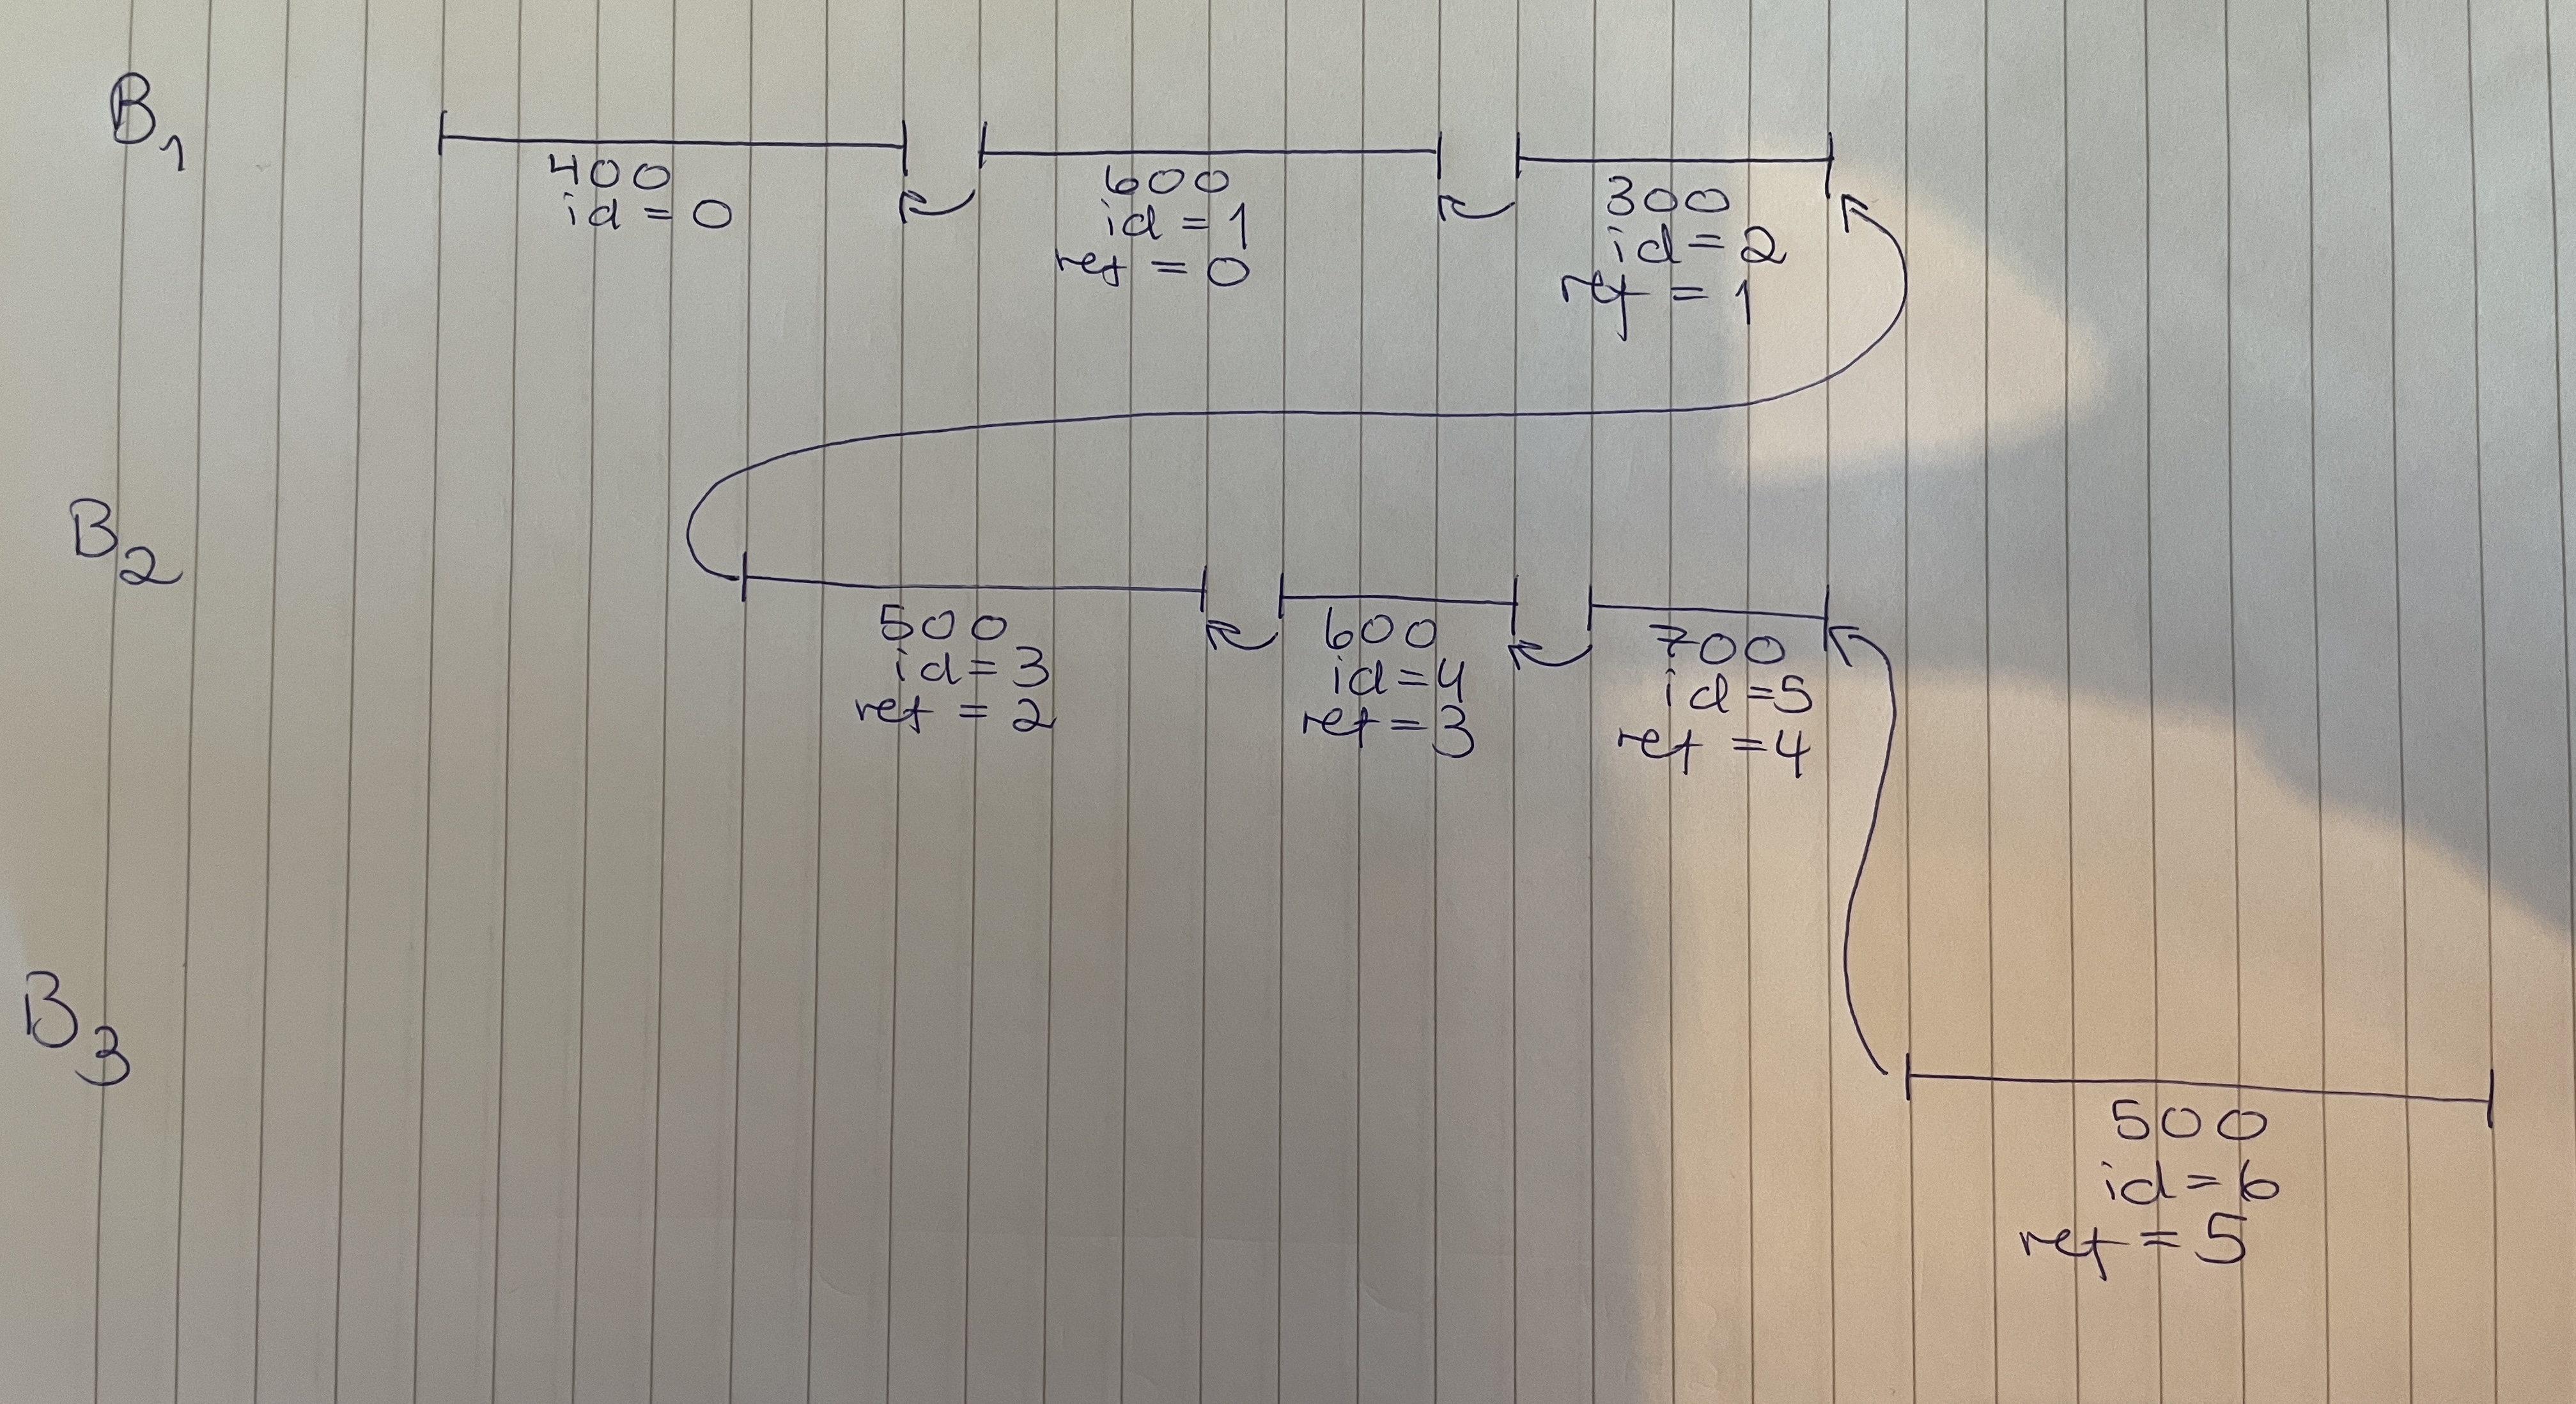 B1
400
id = 0
600
id = 1
ref = 0
300
id = 2
ref = 1
B2
500
id = 3
ref = 2
600
id = 4
ref = 3
700
id = 5
ref = 4
B3
500
id = 6
ref = 5